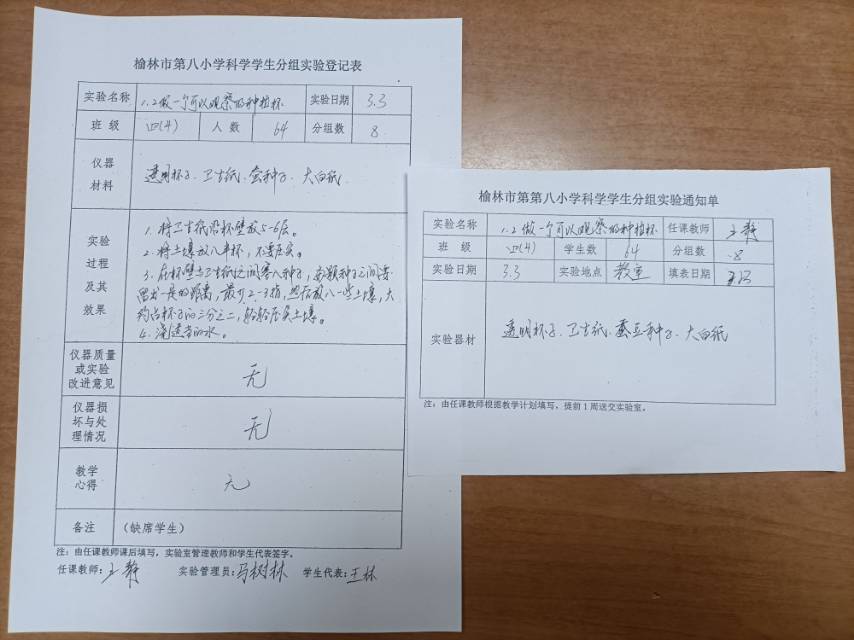 榆林市第八小学科学学生分组实验登记表
实验名称 1.2做一个可以观察的种植杯 实验日期 3.3
班 级 四(4) 人 数 64 分组数 8
仪器
材料
透明杯子、卫生纸、蚕种子、大白纸
实验
过程
及其
效果
1. 将卫生纸沿杯壁放5-6层。
2. 将土壤放入半杯，不要压实。
3. 在杯壁与卫生纸之间塞入种子，每颗种子之间要
留出一定的距离，最少2-3指，然后放入一些土壤，大
约占杯子的三分之二，轻轻压实土壤。
4. 浇适当的水。
仪器质量
或实验
改进意见
无
仪器损
坏与处
理情况
无
教学
心得
无
备注 (缺席学生)
注：由任课教师课后填写，实验室管理教师和学生代表签字。
任课教师：王静 实验管理员：马树林 学生代表：王林
榆林市第第八小学科学学生分组实验通知单
实验名称 1.2做一个可以观察的种植杯 任课教师 王静
班 级 四(4) 学生数 64 分组数 8
实验日期 3.3 实验地点 教室 填表日期
实验器材 透明杯子、卫生纸、蚕豆种子、大白纸
注：由任课教师根据教学计划填写，提前1周送交实验室。